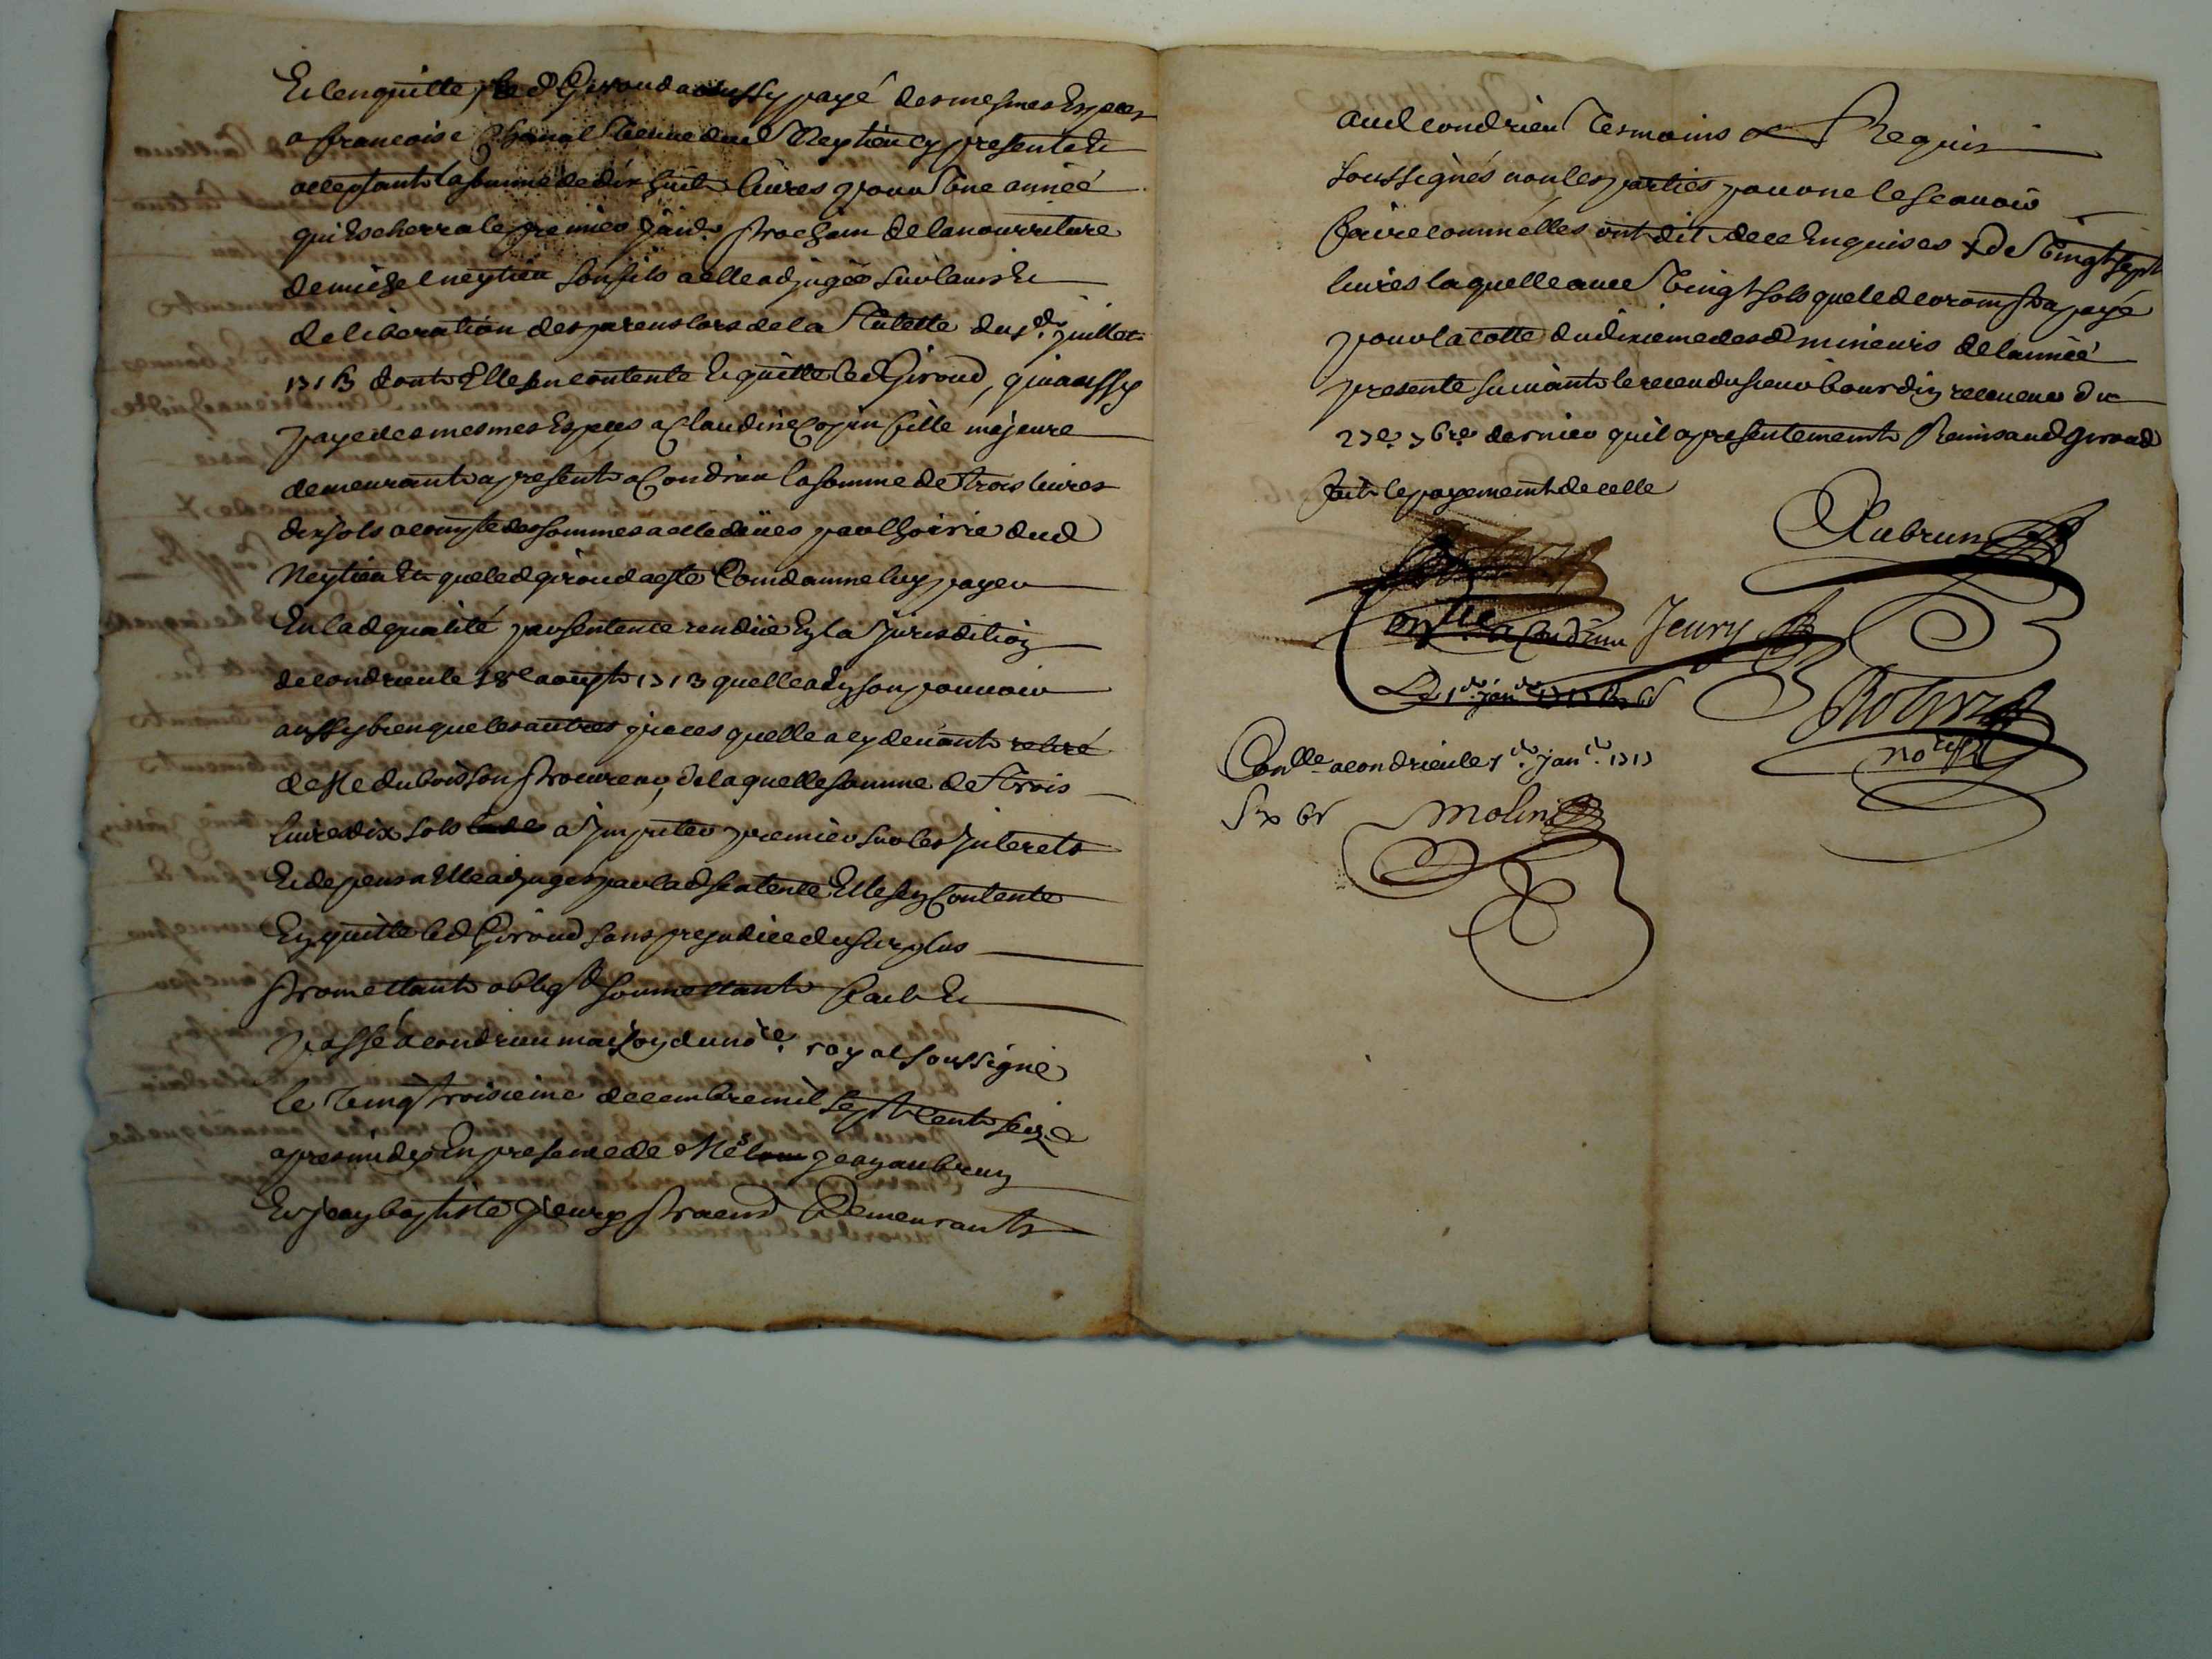 Et len quitte, led Giroud a aussy payé des mesmes Especes
a francoise Chanal veuve dud Neytieu cy presente Et
acceptante la somme de dix huit livres pour une année
qui Escherra le premier janr prochain de la nourriture
de michel neytieu son fils a elle adjugée suivt lavis Et
deliberation des parens lors de la Tutelle du juillet
dont Elle sen contente Et quitte led Giroud, qui a aussy
paye des mesmes Especes a Claudine Copin fille majeure
demeurante a present a Condrieu la somme de trois livres
dix sols a compte des sommes a elle dües par lhoirie dud
Neytieu Et que led giroud a esté Condamné luy payer
En lad qualité par sentence rendüe En la Jurisdition
de condrieu le 18e aoust 1713 quelle a dy son pouvoir
aussy bien que les autres pieces quelle a cy devant retiré
de Me dubois son procureur, de laquelle somme de trois
livres dix sols a Imputer premier sur les Interets
Et depens a Elle adjugés par lad sentence Elle sen Contente
En quitte led Giroud sans prejudice du surplus
promettant obligt soumettant fait Et
passé a condrieu maison du nore royal soussigné
le vingt troisieme decembre mil sept cent seize
apres midy En presence de Me jean aubrun
Et jean baptiste jeury praend Demeurants
aud condrieu Tesmoins Requis
soussignés non les parties pour ne le scavoir
faire comme elles ont dit de ce Enquises x de vingt sept
livres laquelle avec vingt sols que led a payé
pour la cotte du dixieme desd mineurs de lannéé
presente suivant le receu du sieur bourdin receveur du
27e 7bre dernier quil a presentement Remis aud giroud
fait le payement de celle
Aubrun
a Condrieu Jeury
Le 1er janer
Robin
nore
Conlle a condrieu le 1er janer 1717
molin